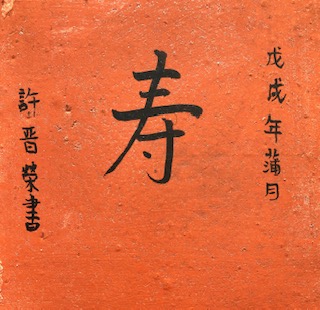 戊戌年蒲月
寿
許晋榮書